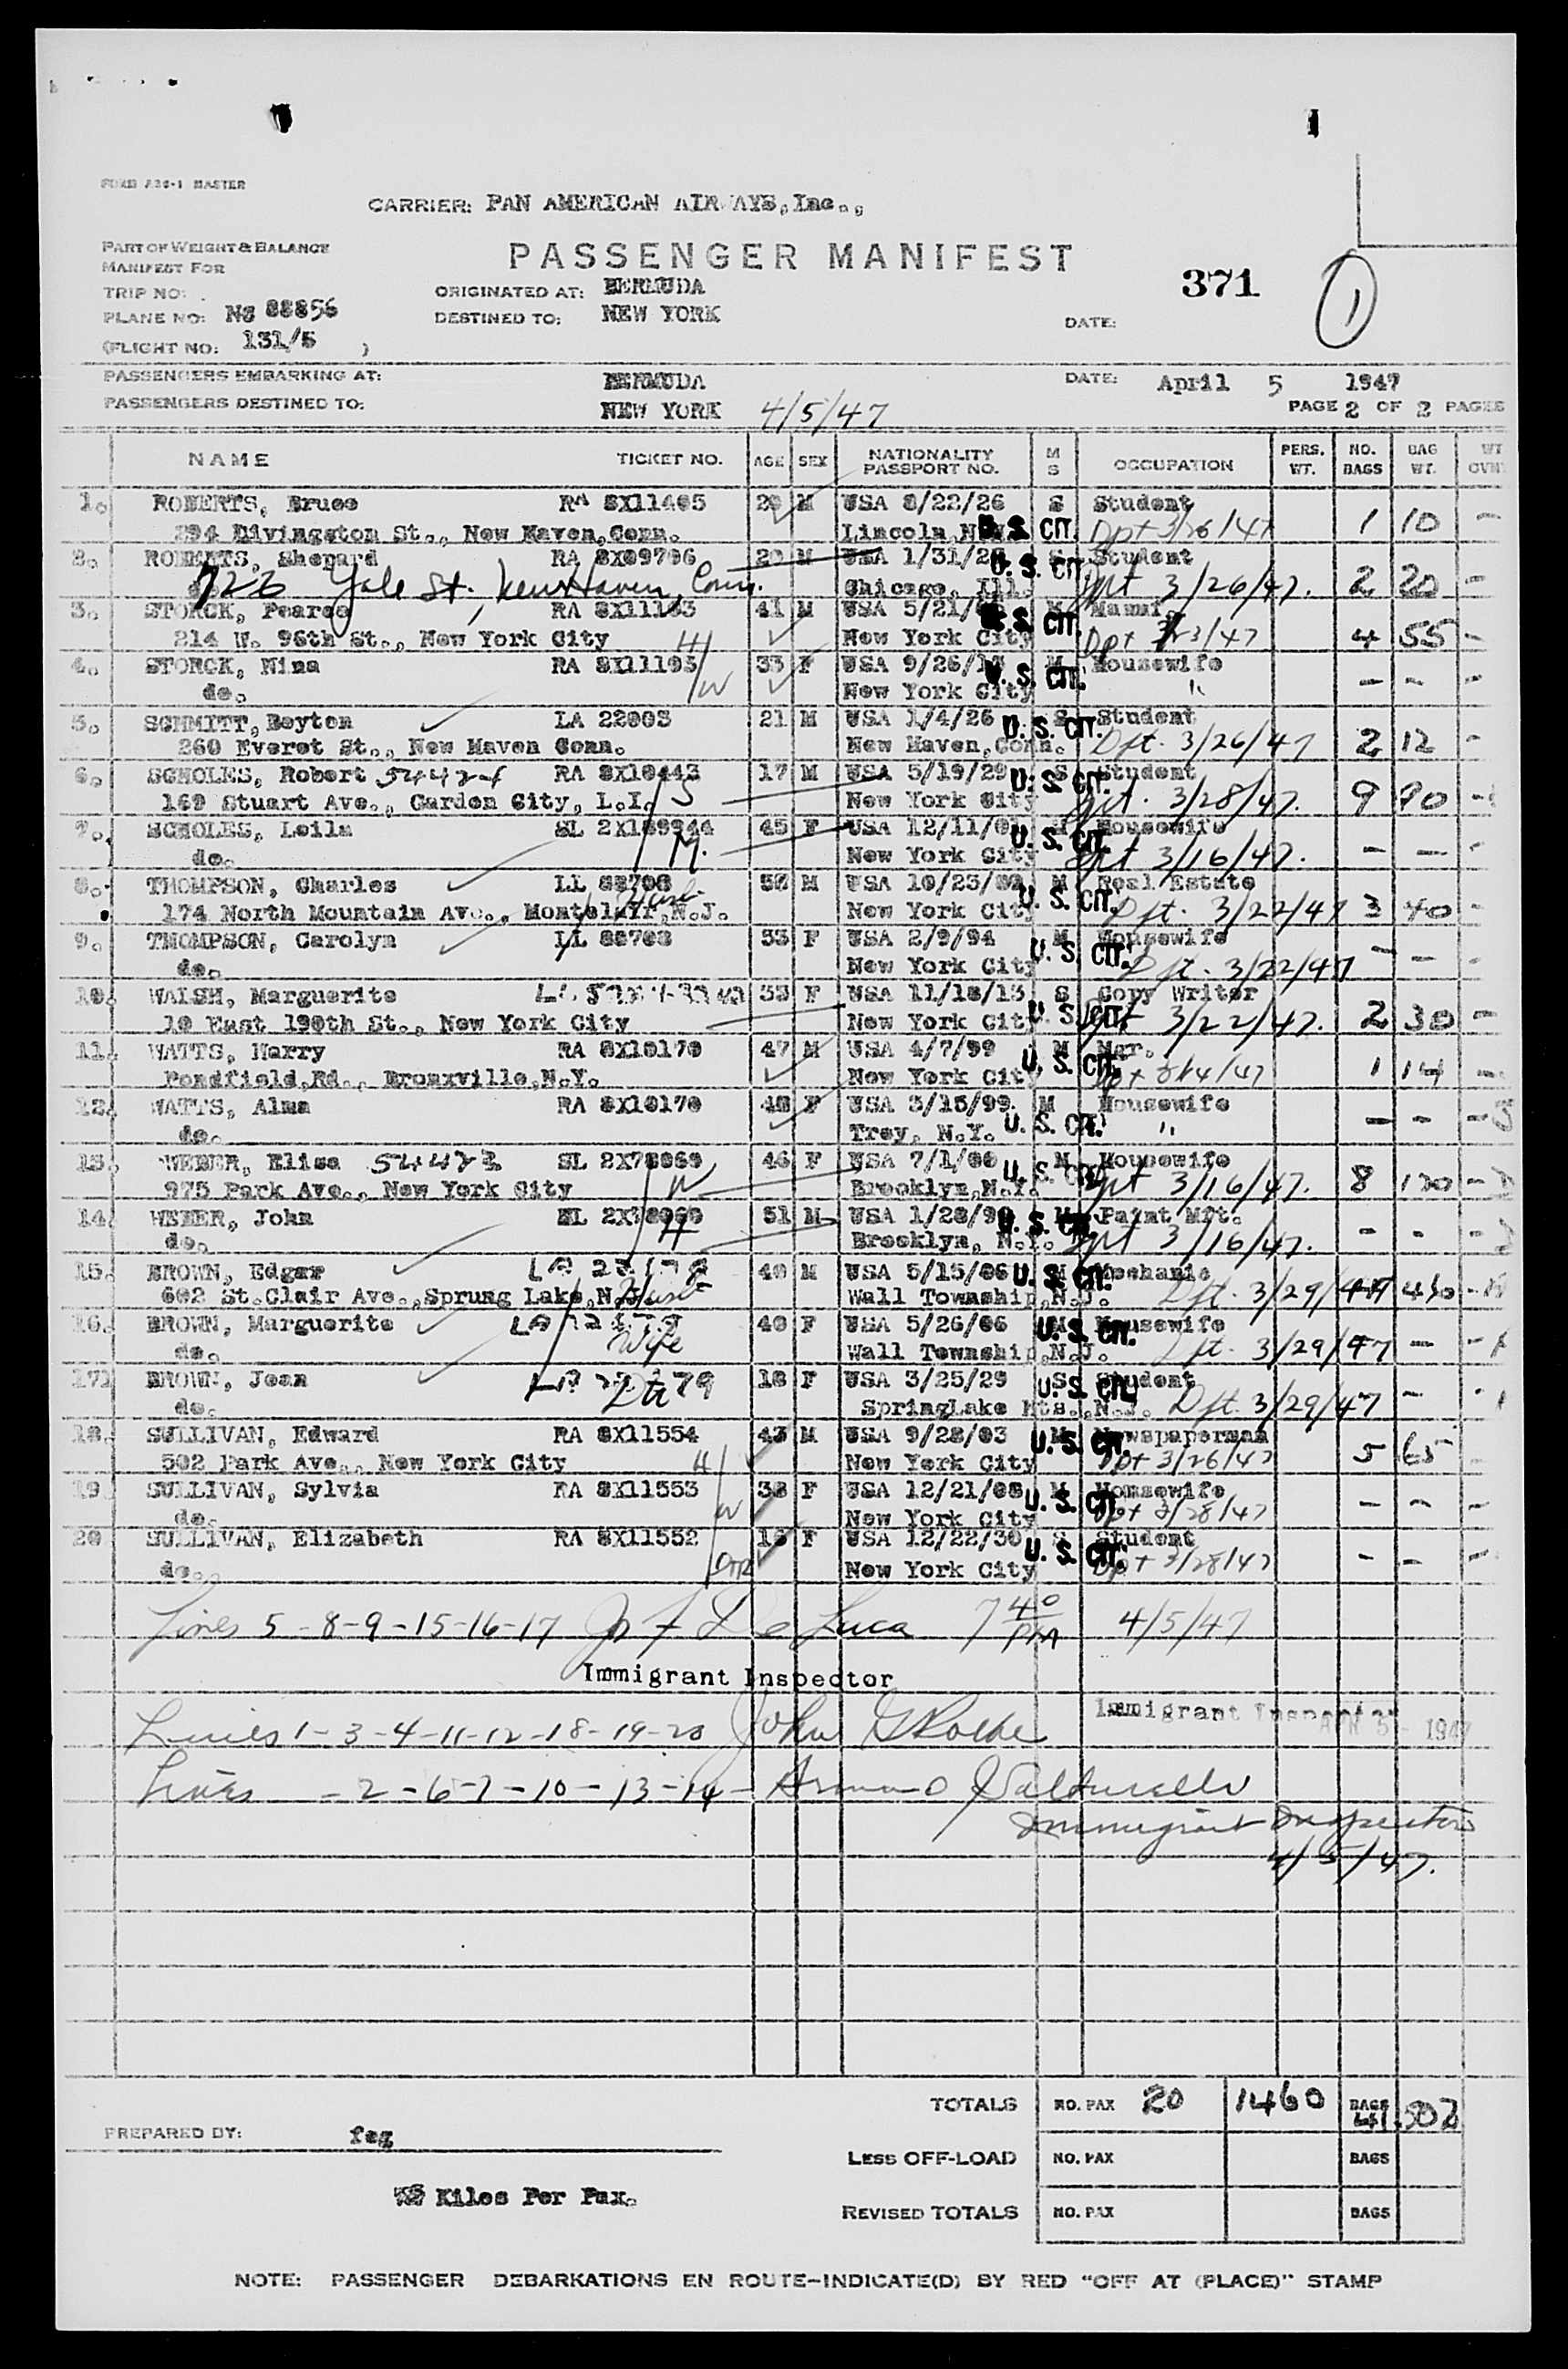 FORM A36-1 MASTER
CARRIER: PAN AMERICAN AIRWAYS, Inc.,
PART OF WEIGHT & BALANCE
MANIFEST FOR
PASSENGER MANIFEST
371
1
TRIP NO:
ORIGINATED AT: BERMUDA
PLANE NO: NC 88856
DESTINED TO: NEW YORK
DATE:
(FLIGHT NO: 131/5 )
PASSENGERS EMBARKING AT: BERMUDA DATE: April 5 1947
PASSENGERS DESTINED TO: NEW YORK 4/5/47 PAGE 2 OF 2 PAGES
NAME TICKET NO. AGE SEX NATIONALITY PASSPORT NO. M S OCCUPATION PERS. WT. NO. BAGS BAG WT. WT
1. ROBERTS, Bruce RA 8X11405 20 M USA 8/22/26 S Student
294 Livingston St., New Haven, Conn. Lincoln, U. S. CIT. Dpt 3/26/47 1 10 -
2. ROBERTS, Shepard RA 8X09796 20 M USA 1/31/26 U. S. CIT. Student
722 Yale St., New Haven, Conn. Chicago, Ill. Dpt 3/26/47. 2 20 -
3. STORCK, Pearce RA 8X11163 41 M USA 5/21/ U. S. CIT. M Manuf.
214 W. 96th St., New York City H New York City Dpt 3/47 4 55 -
4. STORCK, Nina RA 8X11195 33 F USA 9/26/13 U. S. CIT. M Housewife
do. W New York City " - - -
5. SCHMITT, Boyton LA 22003 21 M USA 1/4/26 U. S. CIT. S Student
260 Everet St., New Haven Conn. New Haven, Conn. Dpt. 3/26/47 2 12 -
6. SCHOLES, Robert 54424 RA 8X10443 17 M USA 5/19/29 U. S. CIT. S Student
169 Stuart Ave., Garden City, L.I. S New York City Dpt. 3/28/47. 9 90 -
7. SCHOLES, Leila SL 2X169944 45 F USA 12/11/01 U. S. CIT. M Housewife
do. M. New York City Dpt 3/16/47. - - -
8. THOMPSON, Charles LL 88708 M USA 10/23/ U. S. CIT. M Real Estate
174 North Mountain Ave., Montclair, N.J. Husb New York City Dpt. 3/22/47 3 40 -
9. THOMPSON, Carolyn LL 88708 53 F USA 2/9/94 U. S. CIT. M Housewife
do. New York City Dpt. 3/22/47 - - -
10. WALSH, Marguerite 33 F USA 11/18/13 U. S. CIT. S Copy Writer
10 East 190th St., New York City New York City Dpt 3/22/47. 2 30 -
11. WATTS, Harry RA 8X10170 47 M USA 4/7/99 U. S. CIT. M Mgr.
Pondfield, Rd., Bronxville, N.Y. New York City Dpt 1 14 -
12. WATTS, Alma RA 8X10170 48 F USA 3/15/99 U. S. CIT. M Housewife
do. Troy, N.Y. " - - -
13. WEBER, Elisa SL 2X78069 46 F USA 7/1/00 U. S. CIT. M Housewife
975 Park Ave., New York City W Brooklyn, N.Y. Dpt 3/16/47. 8 -
14. WEBER, John SL 2X78069 51 M USA 1/28/96 U. S. CIT. M Paint Mft.
do. H Brooklyn, N.Y. Dpt 3/16/47. - - -
15. BROWN, Edgar 40 M USA 5/15/06 U. S. CIT. M Mechanic
602 St. Clair Ave., Sprung Lake, N.J. Husb Wall Township, N.J. Dpt. 3/29/47
16. BROWN, Marguerite 40 F USA 5/26/06 U. S. CIT. M Housewife
do. Wife Wall Township, N.J. Dpt. 3/29/47 - -
17 BROWN, Jean 18 F USA 3/25/29 U. S. CIT. S Student
do. Dtr SpringLake Hts., N.J. Dpt. 3/29/47 -
18. SULLIVAN, Edward RA 8X11554 43 M USA 9/28/03 U. S. CIT. M Newspaperman
502 Park Ave., New York City H New York City Dpt 3/26/47 5 65 -
19 SULLIVAN, Sylvia RA 8X11553 38 F USA 12/21/08 U. S. CIT. M Housewife
do. W New York City Dpt 3/28/47 - - -
20 SULLIVAN, Elizabeth RA 8X11552 16 F USA 12/22/30 U. S. CIT. S Student
do. DTR New York City Dpt 3/28/47 - - -
Lines 5-8-9-15-16-17 De Luca 7 40 PM 4/5/47
Immigrant Inspector
Lines 1-3-4-11-12-18-19-20 John Immigrant Inspector APR 5 - 1947
Lines - 2-6-7-10-13-14
Immigrant Inspector
4/5/47.
TOTALS NO. PAX 20 1460 BAGS 41 502
PREPARED BY: feg
LESS OFF-LOAD NO. PAX BAGS
Kilos Per Pax.
REVISED TOTALS NO. PAX BAGS
NOTE: PASSENGER DEBARKATIONS EN ROUTE-INDICATE(D) BY RED "OFF AT (PLACE)" STAMP